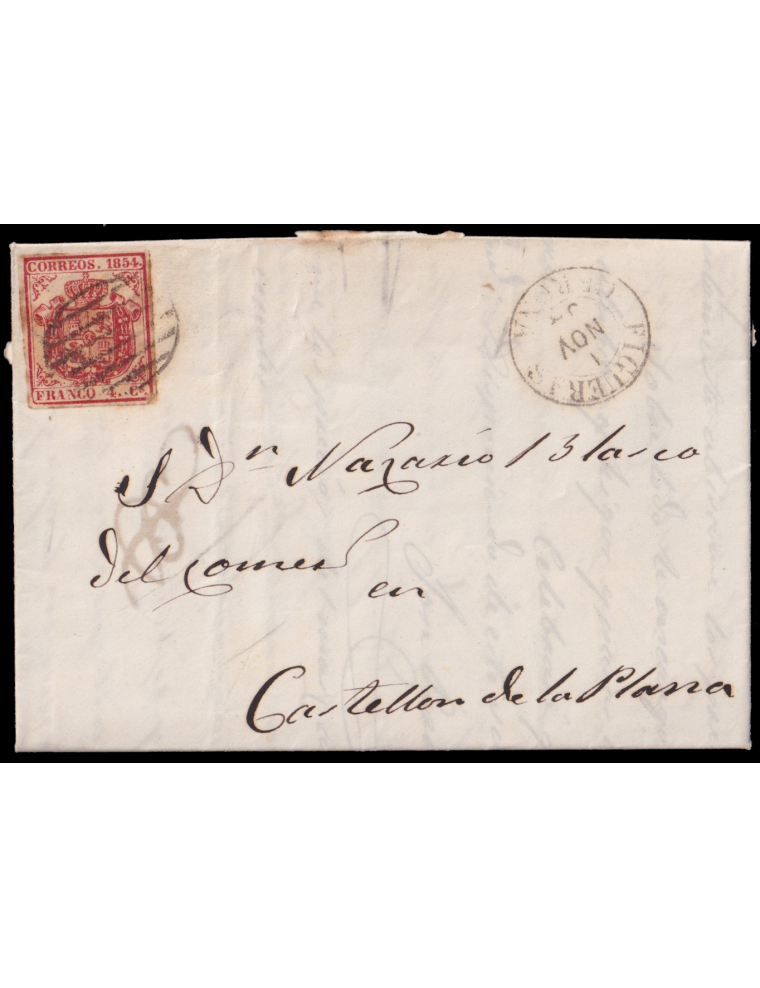 CORREOS. 1854.
FRANCO 4..Cs
FIGUERAS
GERONA
1
NOV
S Dn Nazario Blasco
del comerº
en
Castellon de la Plana